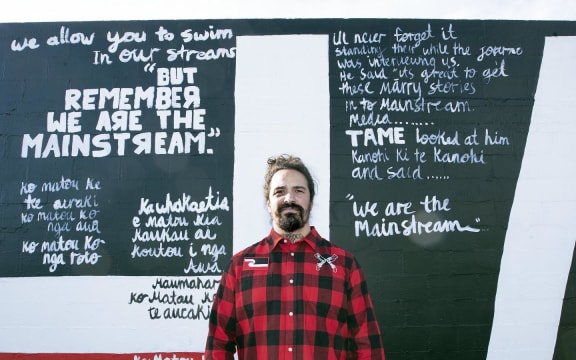 we allow you to swim
in our streams
"BUT
REMEMBER
WE ARE THE
MAINSTREAM."
ko matou ke
te auraki
ko matou ko
nga aua
ko matou ko
nga roto
Kawhakaetia
e matou kia
Kaukau ai
koutou i nga
Awa
Maumahara
ko matau ko
te auraki
ill never forget it
standing their while the
was interviewing us.
He said "its great to get
these Marry stories
in to Mainstream
media........
TAME looked at him
Kanohi ki te kanohi
and said......
"We are the
Mainstream"